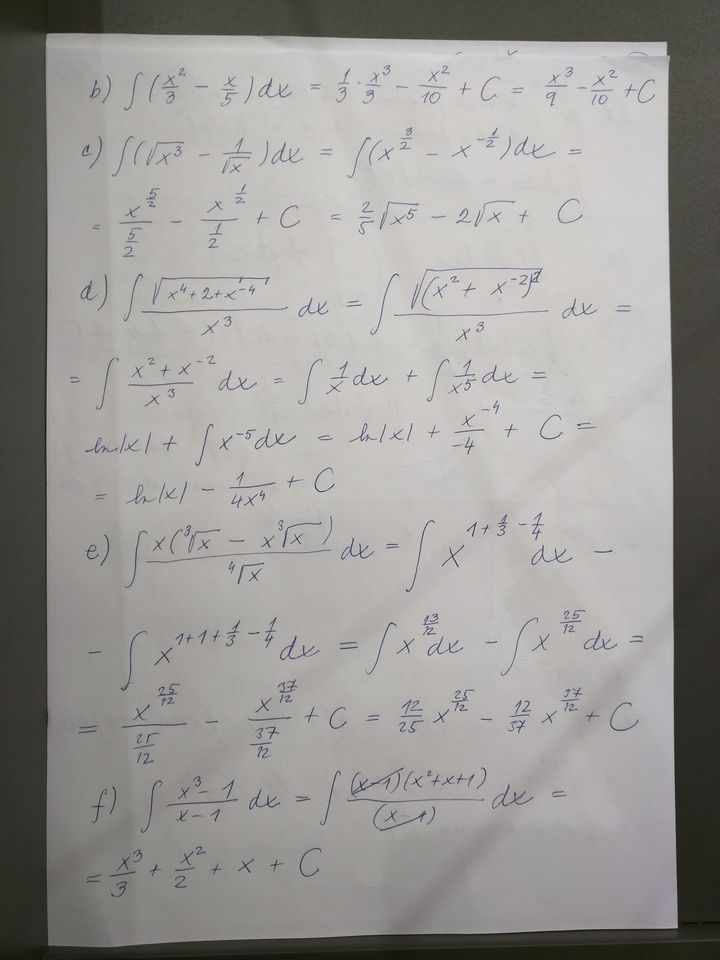 b) ∫(x²/3 − x/5)dx = 1/3 · x³/3 − x²/10 + C = x³/9 − x²/10 + C
c) ∫(√x³ − 1/√x)dx = ∫(x^(3/2) − x^(−1/2))dx =
= x^(5/2)/(5/2) − x^(1/2)/(1/2) + C = 2/5 √x⁵ − 2√x + C
d) ∫ √(x⁴+2+x⁻⁴)/x³ dx = ∫ √((x² + x⁻²)²)/x³ dx =
= ∫ (x² + x⁻²)/x³ dx = ∫ 1/x dx + ∫ 1/x⁵ dx =
ln|x| + ∫ x⁻⁵ dx = ln|x| + x⁻⁴/−4 + C =
= ln|x| − 1/(4x⁴) + C
e) ∫ x(∛x − x∛x)/∜x dx = ∫ x^(1+1/3−1/4) dx −
− ∫ x^(1+1+1/3−1/4) dx = ∫ x^(13/12) dx − ∫ x^(25/12) dx =
= x^(25/12)/(25/12) − x^(37/12)/(37/12) + C = 12/25 x^(25/12) − 12/37 x^(37/12) + C
f) ∫ (x³−1)/(x−1) dx = ∫ (x−1)(x²+x+1)/(x−1) dx =
= x³/3 + x²/2 + x + C